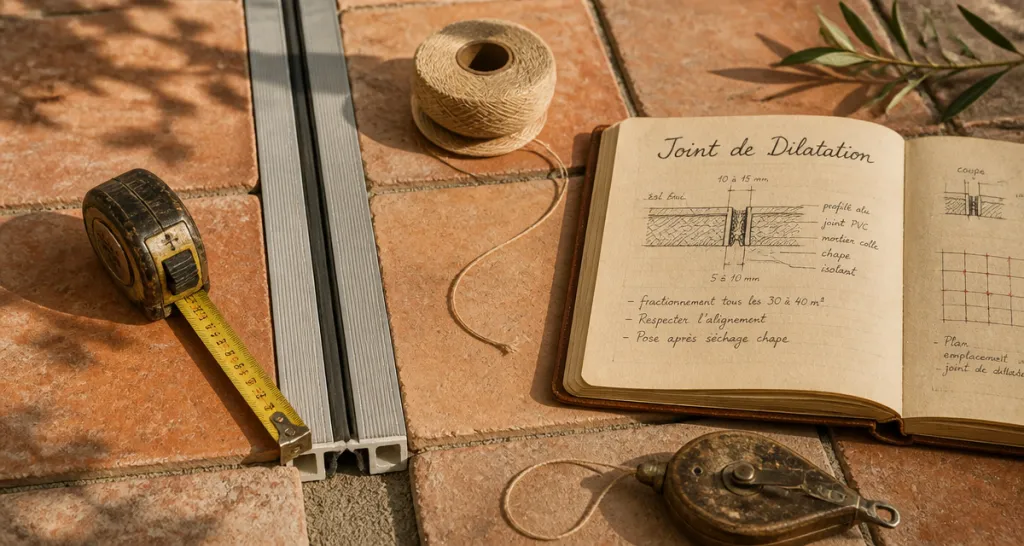 Joint de Dilatation
10 à 15 mm
profilé alu
joint PVC
mortier colle
chape
isolant
5 à 10 mm
- fractionnement tous les 30 à 40 m²
- Respecter l'alignement
- Pose après séchage chape
coupe
- Plan
emplacement
- joint de